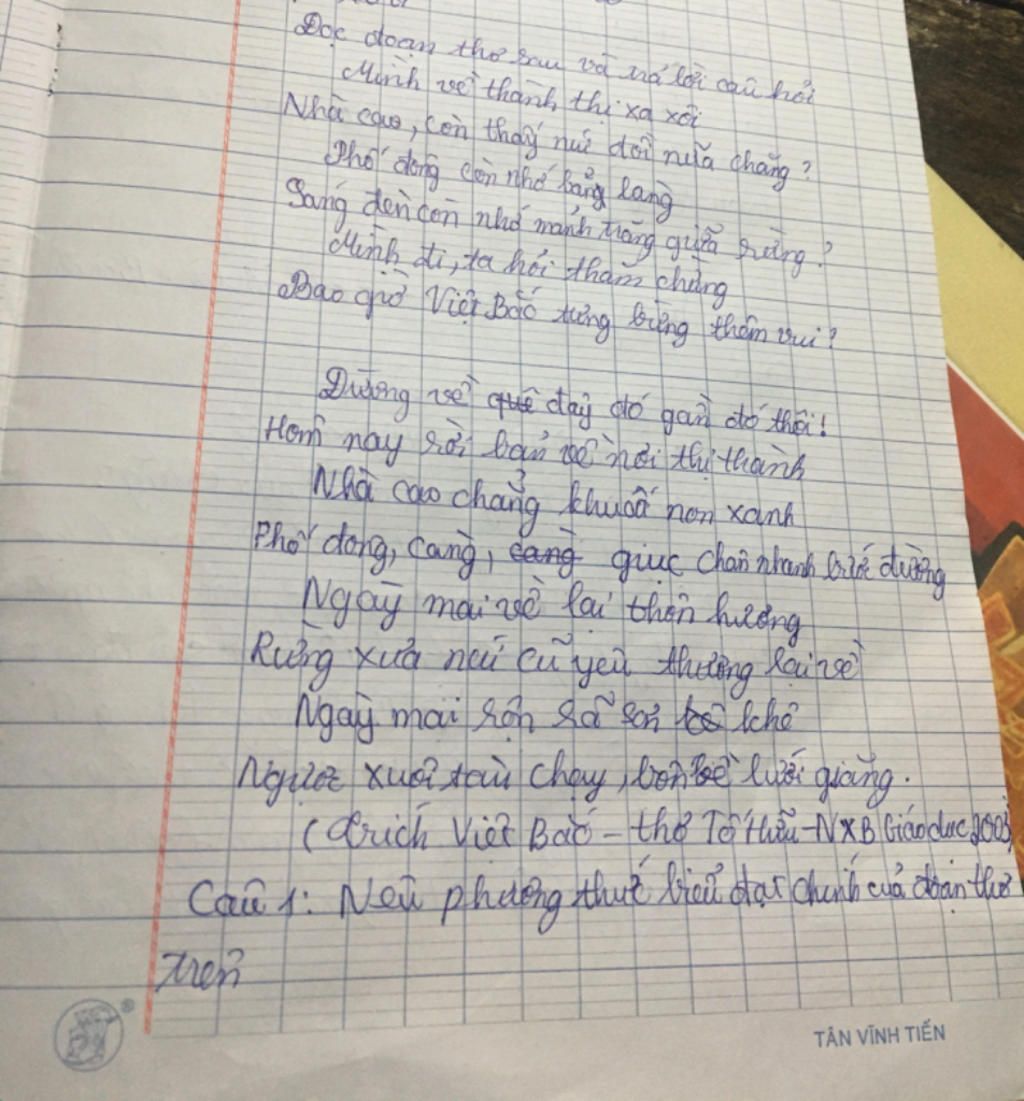 Đọc đoạn thơ sau và trả lời câu hỏi
Mình về thành thị xa xôi
Nhà cao, còn thấy núi đồi nữa chăng?
Phố đông còn nhớ bảng làng
Sáng đèn còn nhớ mảnh trăng giữa rừng?
Mình đi, ta hỏi thăm chừng
Bao giờ Việt Bắc tưng bừng thêm vui?
Đường về quê đây đó gần đó thôi!
Hôm nay rời bản về nơi thị thành
Nhà cao chẳng khuất non xanh
Phố đông, càng, càng giục chân nhanh bước đường
Ngày mai về lại thôn hương
Rừng xưa núi cũ yêu thương lại về
Ngày mai rộn rã sơn khê
Ngược xuôi tàu chạy, bốn bề lưới giăng.
(Trích Việt Bắc - thơ Tố Hữu - NXB Giáo dục 2003)
Câu 1: Nêu phương thức biểu đạt chính của đoạn thơ
trên
TÂN VĨNH TIẾN